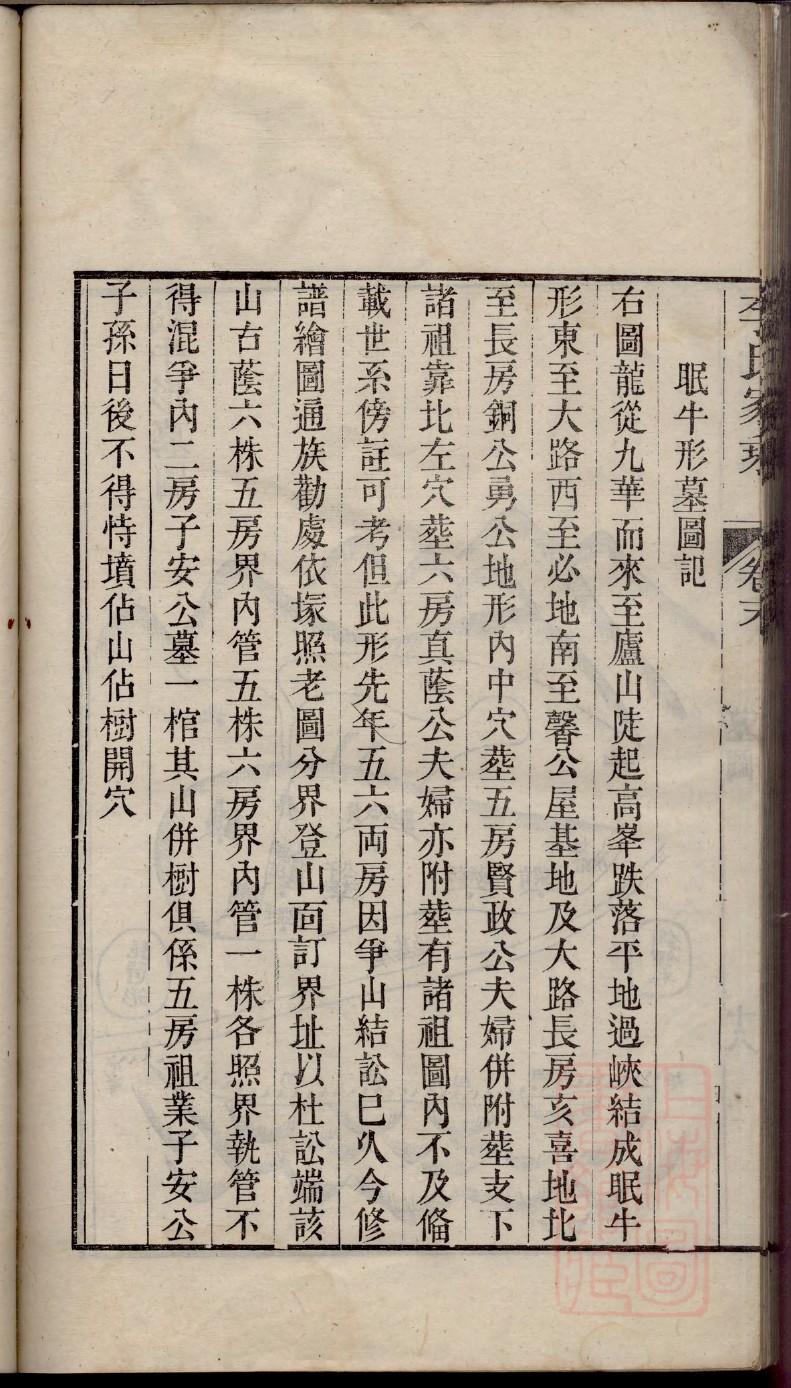 李氏家乘
卷末
眠牛形墓圖記
右圖龍從九華而來至廬山陡起高峯跌落平地過峽結成眠牛
形東至大路西至必地南至馨公屋基地及大路長房亥喜地北
至長房銅公勇公地形內中穴塟五房賢政公夫婦併附塟支下
諸祖靠北左穴塟六房真蔭公夫婦亦附塟有諸祖圖內不及俻
載世系傍註可考但此形先年五六両房因爭山結訟巳久今修
譜繪圖通族勸處依塚照老圖分界登山靣訂界址以杜訟端該
山古蔭六株五房界內管五株六房界內管一株各照界執管不
得混爭內二房子安公墓一棺其山併樹俱係五房祖業子安公
子孫日後不得恃墳佔山佔樹開穴